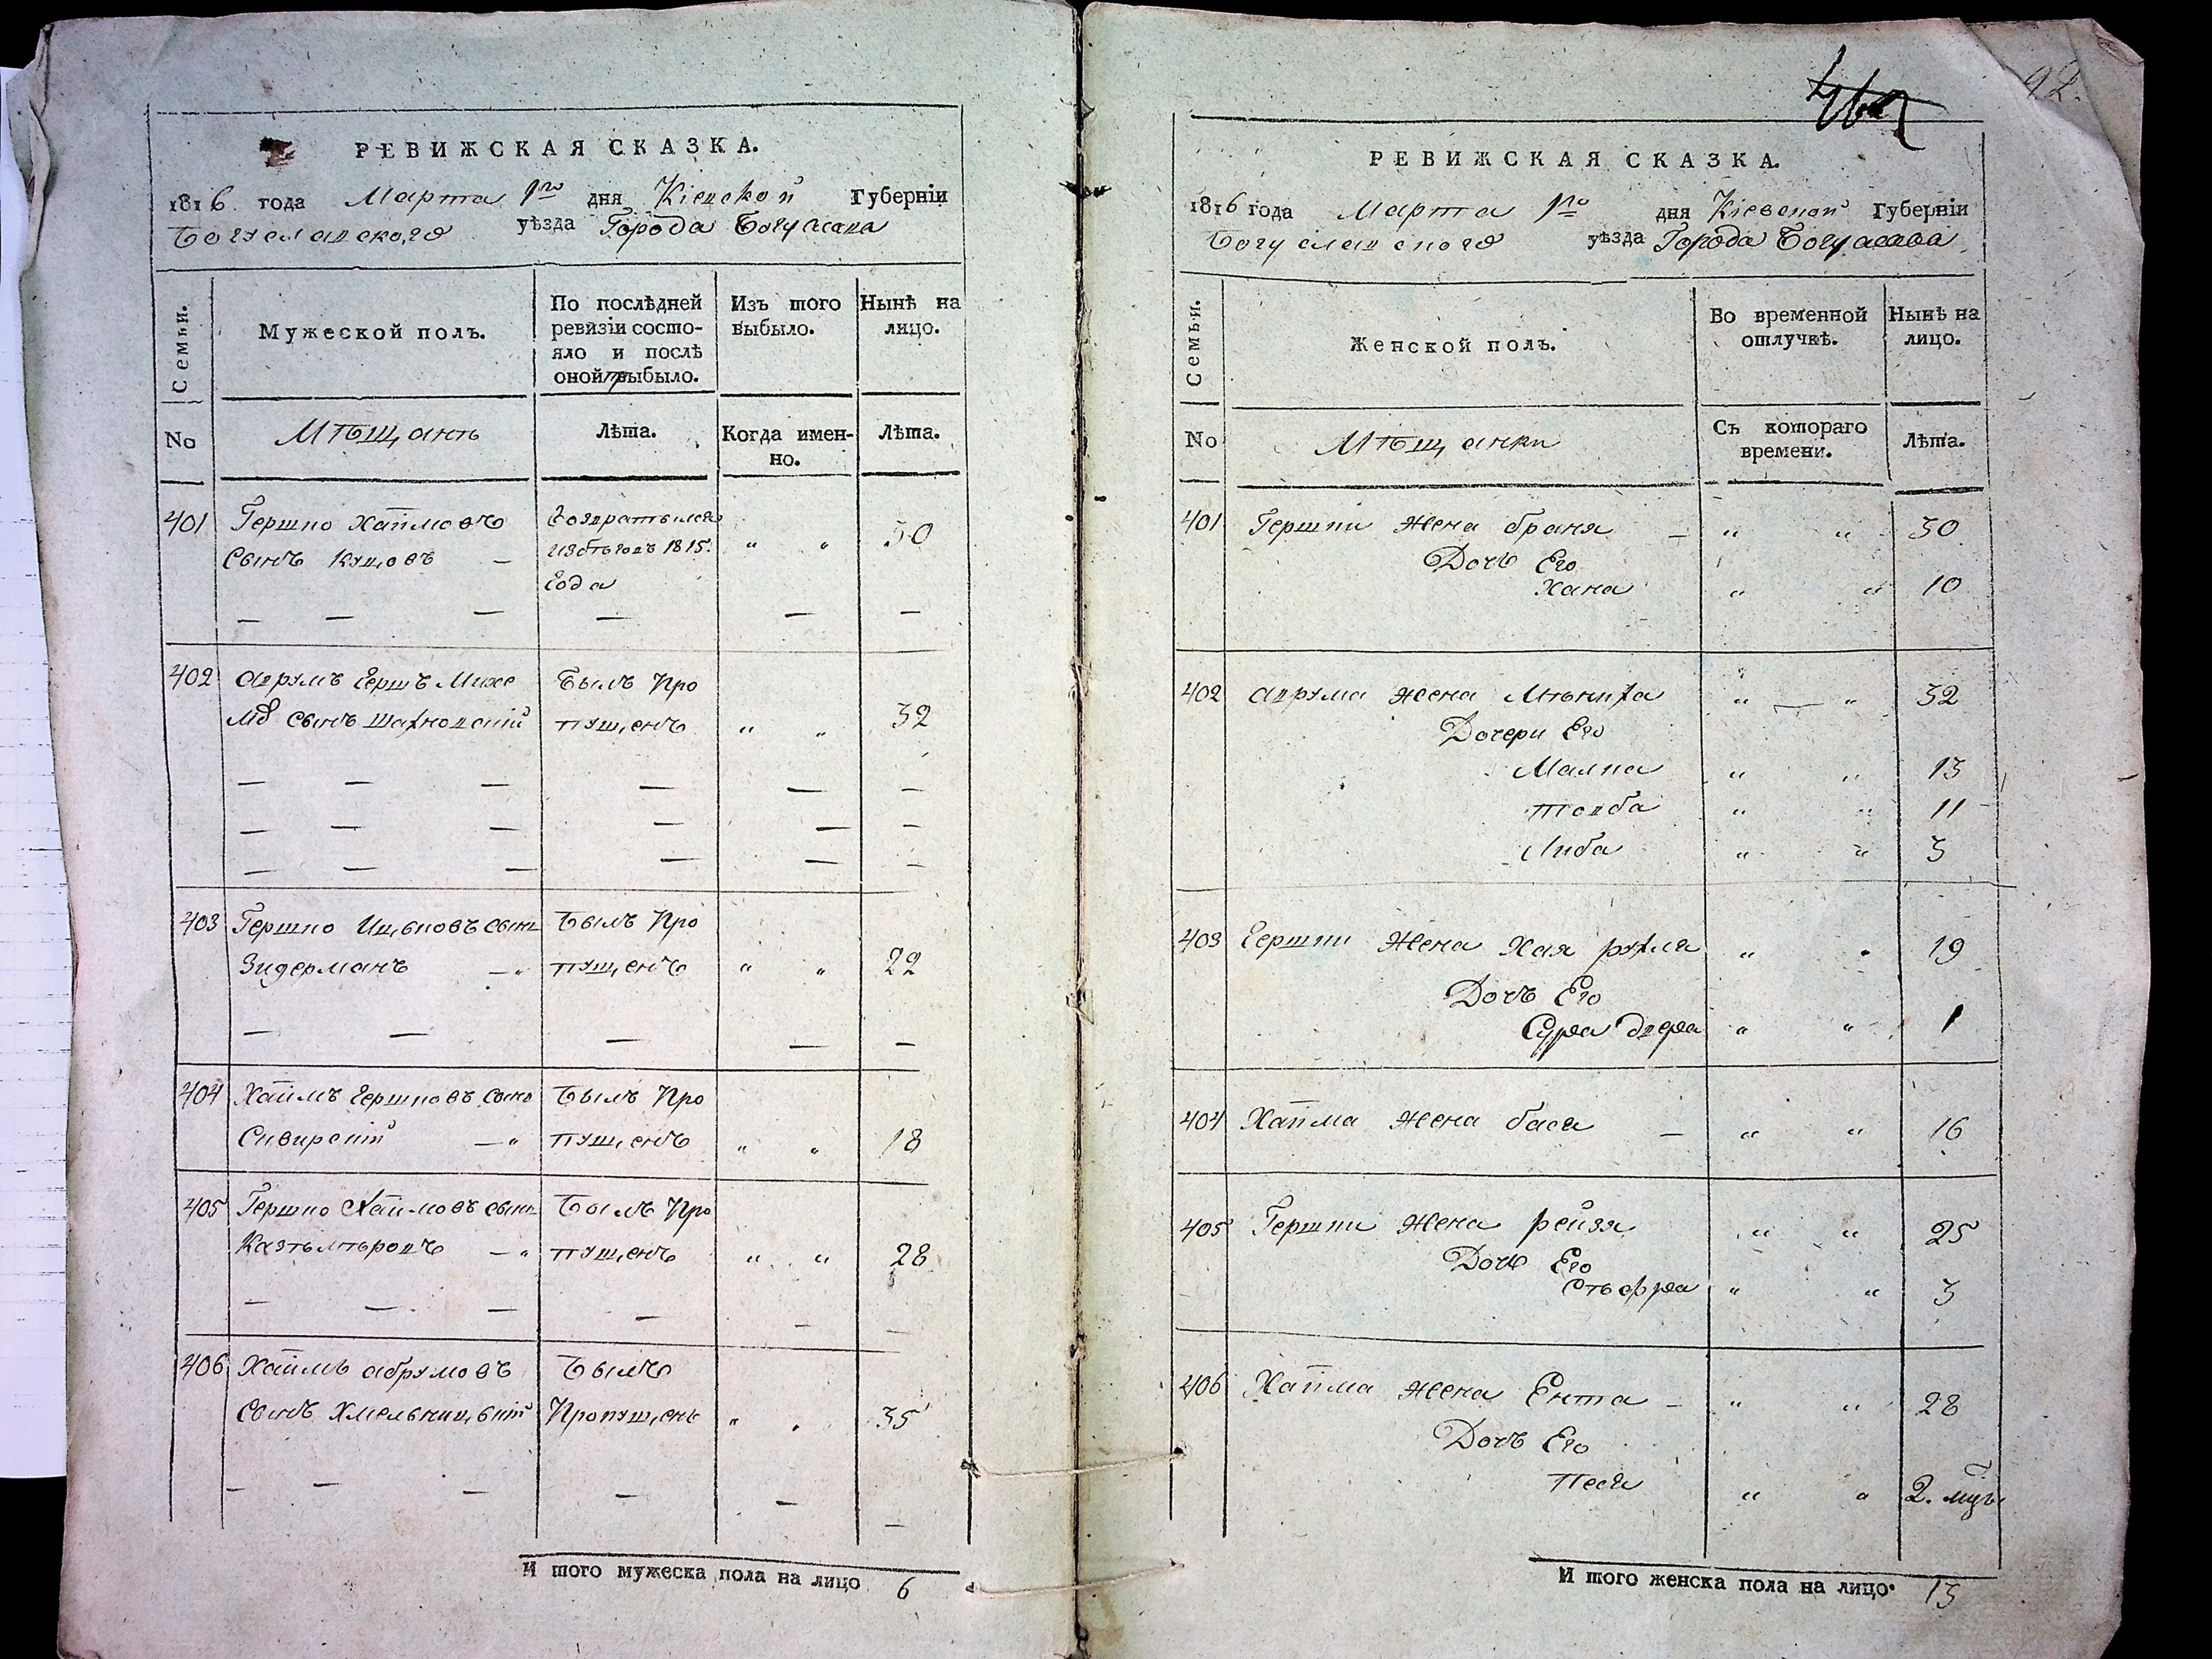 РЕВИЖСКАЯ СКАЗКА.
1816 года Марта 1го дня Кіевской Губерніи
Богуславского уѣзда Города Богуслава
Семьи.
Мужеской полъ.
По послѣдней ревизіи состояло и послѣ оной прибыло.
Изъ того выбыло.
Нынѣ на лицо.
No
Мѣщанъ
Лѣта.
Когда именно.
Лѣта.
401 Гершко Хаймовъ Возвратился
сынъ из бѣговъ 1815. " " 30
Года
402 Аврумъ Гершъ Быль Про
сынъ пущенъ " " 32
403 Гершко Ицьковъ сынъ Былъ Про
Зидерманъ пущенъ " " 22
404 Хаимъ Гершковъ сынъ Былъ Про
Сивирскій пущенъ " " 18
405 Гершко Хаимовъ сынъ Былъ Про
пущенъ " " 28
406 Хаимъ Абрумовъ Былъ
сынъ Хмельницькій Пропущенъ " " 35
И того мужеска пола на лицо 6
92.
РЕВИЖСКАЯ СКАЗКА.
1816 года Марта 1го дня Кіевской Губерніи
Богуславского уѣзда Города Богуслава
Семьи.
Женской полъ.
Во временной отлучкѣ.
Нынѣ на лицо.
No
Мѣщанки
Съ котораго времени.
Лѣта.
401 Гершки Жена Браня " " 30
Дочь Его
Хана " " 10
402 Аврума жена " " 32
Дочери Его
Малка " " 13
Товба " " 11
Либа " " 3
403 Гершки Жена Хая рухля " " 19
Дочь Его
Сура Двера " " 1
404 Хаима Жена Бася " " 16
405 Гершки Жена рейзя " " 25
Дочь Его
" " 3
406 Хаима жена Ента " " 28
Дочь Его
Песя " " 2.
И того женска пола на лицо 13